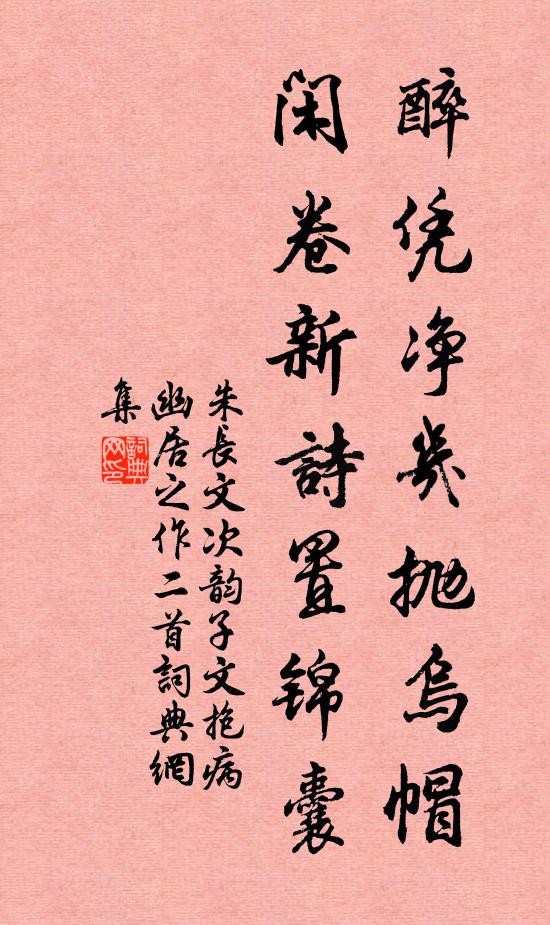 醉凭净几抛乌帽
闲卷新詩置锦囊
朱長文次韵子文抱病
幽居之作二首詞典網
集
詞典
网印